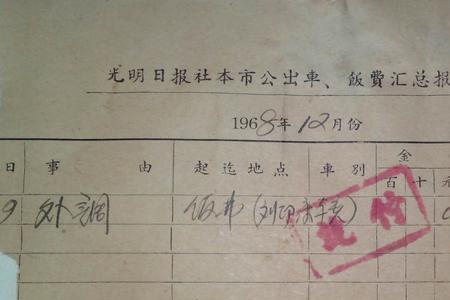 光明日报社本市公出車、飯費汇总报
1968年12月份
日 事 由 起迄地点 車别 金
百 十 元
9 外調 饭费